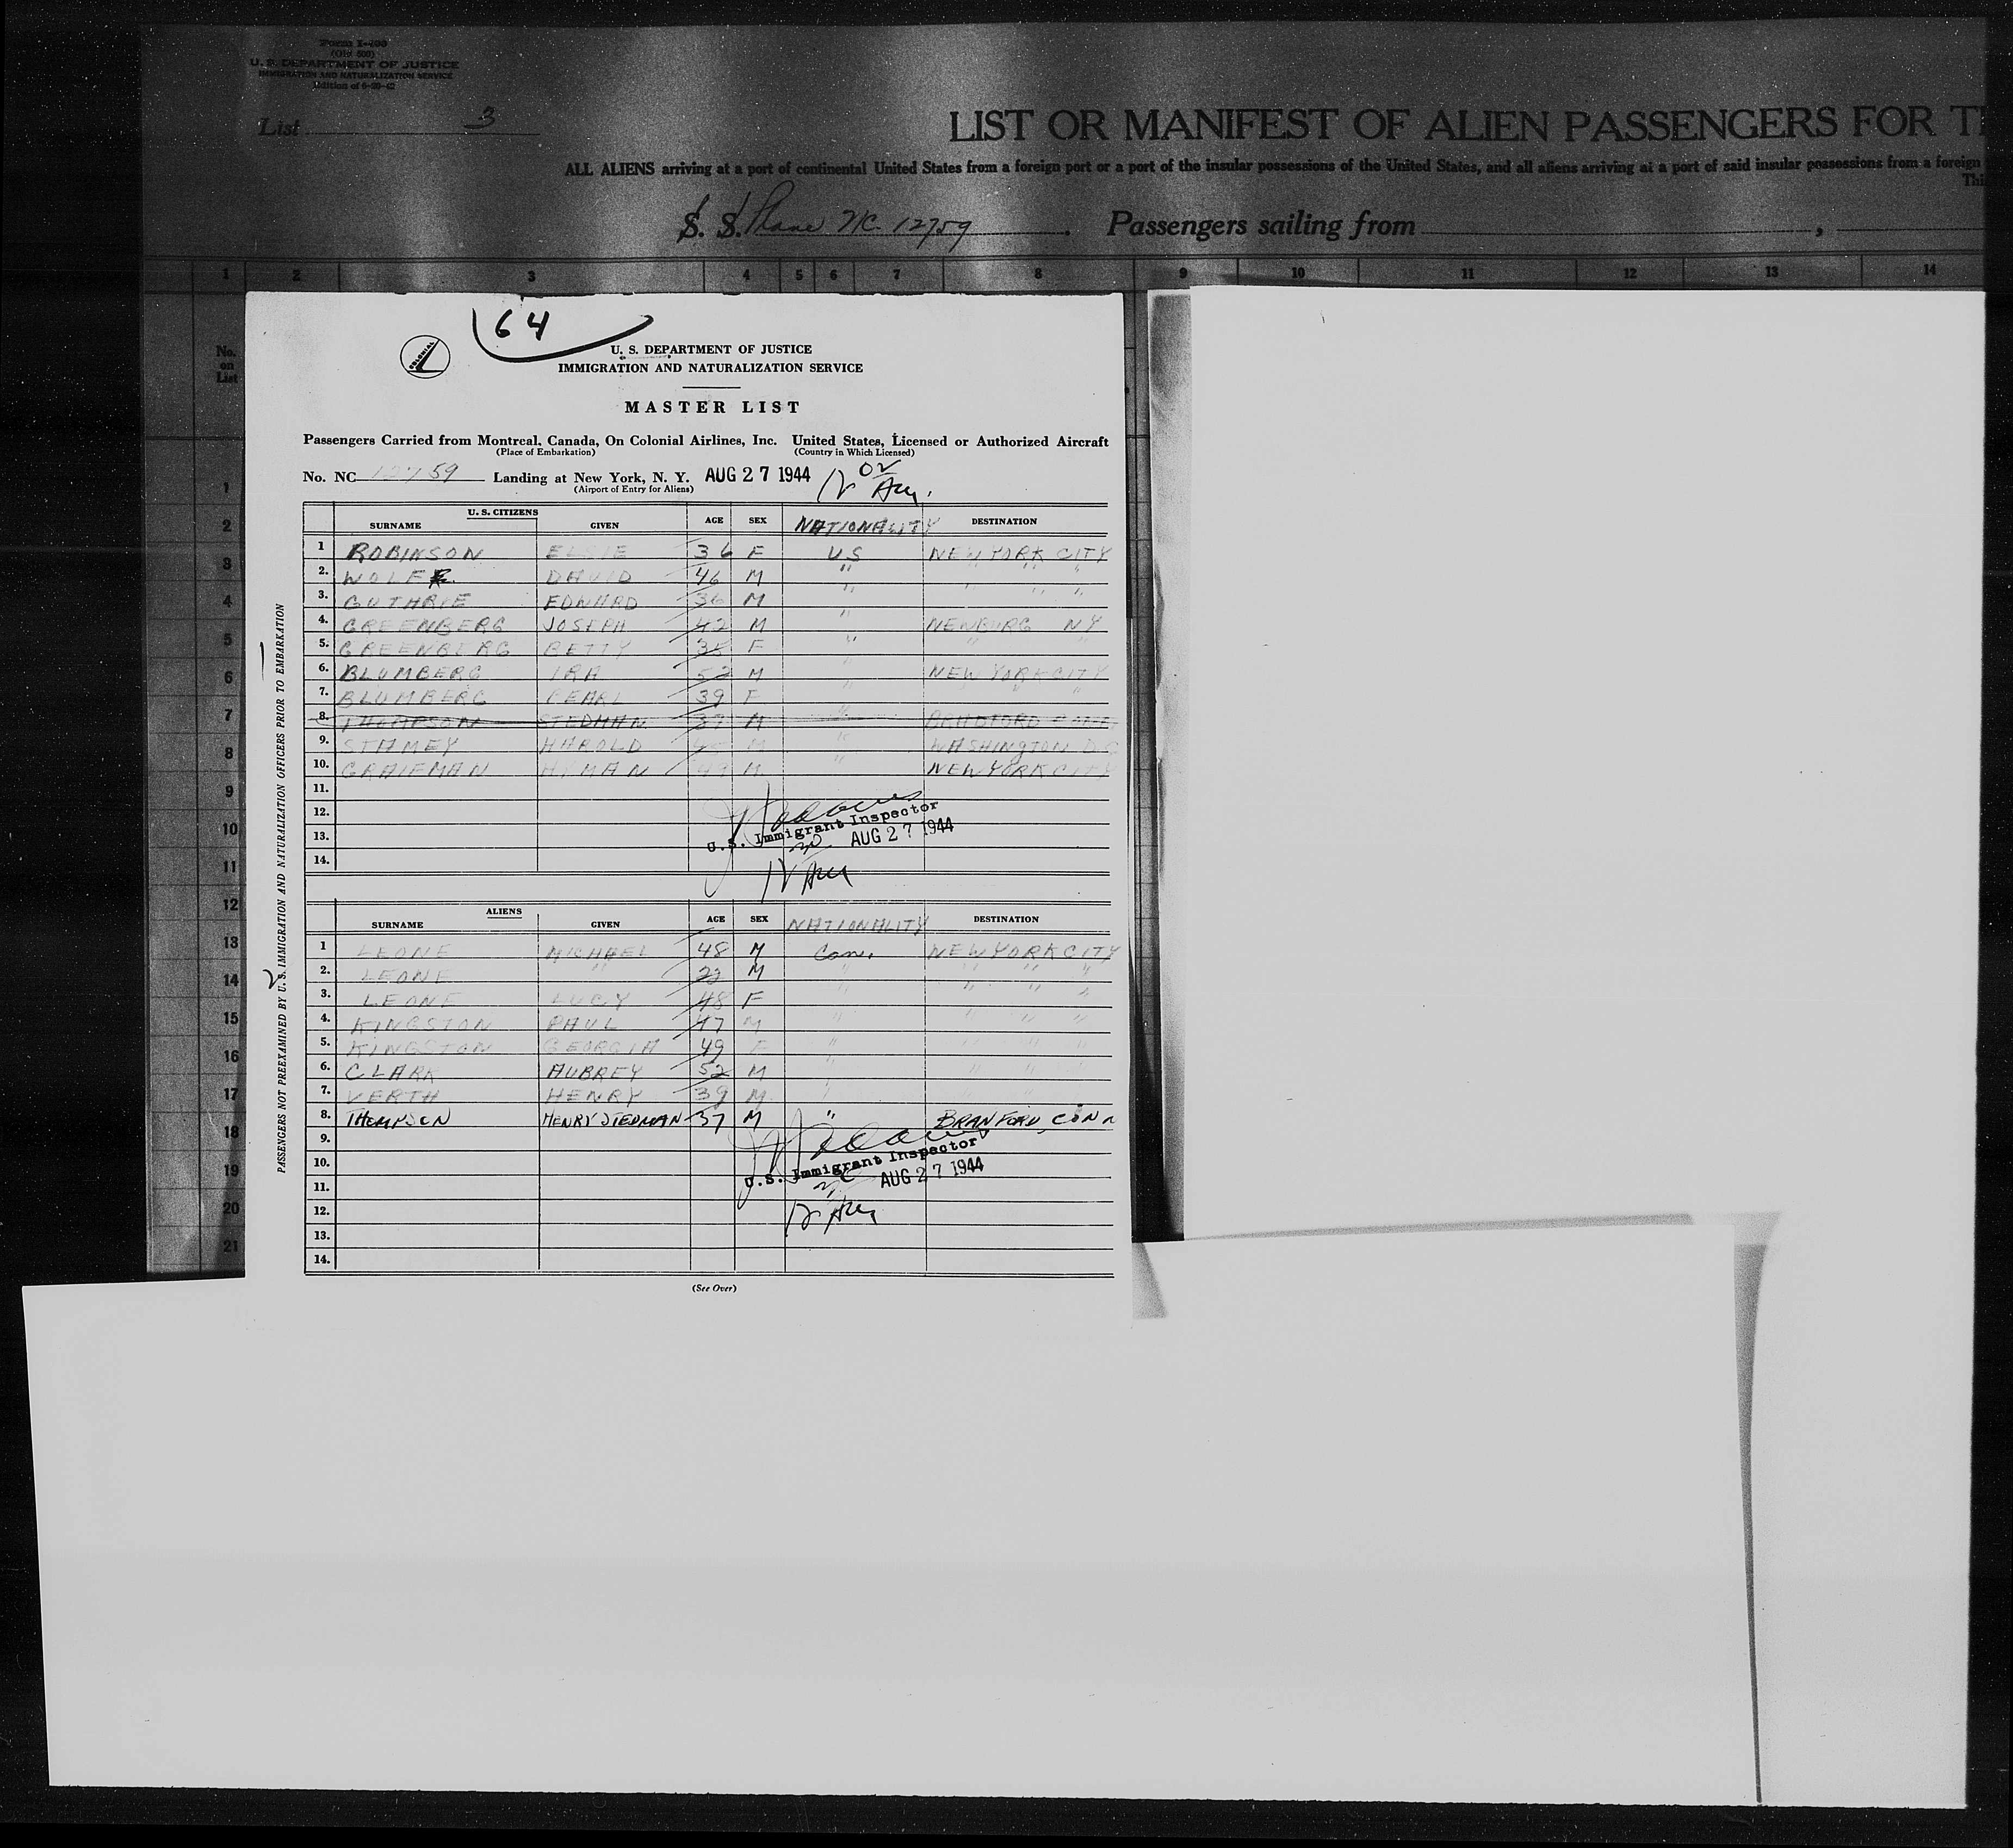 Form I-400
(Old 500)
U. S. DEPARTMENT OF JUSTICE
IMMIGRATION AND NATURALIZATION SERVICE
Edition of 6-20-42
List 3
LIST OR MANIFEST OF ALIEN PASSENGERS FOR T
ALL ALIENS arriving at a port of continental United States from a foreign port or a port of the insular possessions of the United States, and all aliens arriving at a port of said insular possessions from a foreign
Thi
S. S. Plane NC. 12759 . Passengers sailing from ,
1 2 3 4 5 6 7 8 9 10 11 12 13 14
No. on List
1
2
3
4
5
6
7
8
9
10
11
12
13
14
15
16
17
18
19
20
21
64
COLONIAL
U. S. DEPARTMENT OF JUSTICE
IMMIGRATION AND NATURALIZATION SERVICE
MASTER LIST
Passengers Carried from Montreal, Canada, On Colonial Airlines, Inc. United States, Licensed or Authorized Aircraft
(Place of Embarkation) (Country in Which Licensed)
No. NC 12759 Landing at New York, N. Y. AUG 27 1944
(Airport of Entry for Aliens)
U. S. CITIZENS
SURNAME GIVEN AGE SEX NATIONALITY DESTINATION
1 ROBINSON ELSIE 36 F US NEW YORK CITY
2. WOLFE DAVID 46 M " " " "
3. GUTHRIE EDWARD 36 M " " " "
4. GREENBERG JOSEPH 42 M " NEWBURG NY
5. GREENBERG BETTY 35 F " " "
6. BLUMBERG IRA 52 M " NEW YORK CITY
7. BLUMBERG PEARL 39 F " " " "
8. THOMPSON STEDMAN 37 M "
9. STAMEY HAROLD M " WASHINGTON D.C
10. GRAIFMAN HYMAN 49 M " NEW YORK CITY
11.
12.
13.
14.
U.S. Immigrant Inspector
AUG 27 1944
ALIENS
SURNAME GIVEN AGE SEX NATIONALITY DESTINATION
1 LEONE MICHAEL 48 M Can. NEW YORK CITY
2. LEONE " 22 M " " " "
3. LEONE LUCY 48 F " " " "
4. KINGSTON PAUL 47 M " " " "
5. KINGSTON GEORGIA 49 F " " " "
6. CLARK AUBREY 52 M " " " "
7. VERTH HENRY 39 M " " " "
8. THOMPSON HENRY STEDMAN 37 M " BRANFORD, CONN
9.
10.
11.
12.
13.
14.
U.S. Immigrant Inspector
AUG 27 1944
(See Over)
PASSENGERS NOT PREEXAMINED BY U. S. IMMIGRATION AND NATURALIZATION OFFICERS PRIOR TO EMBARKATION